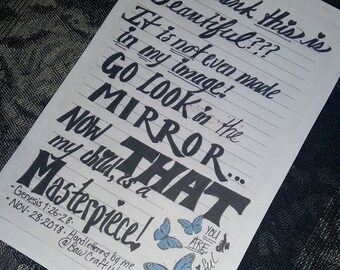 this is
Beautiful???
It is not even made
in my image!
GO LOOK in the
MIRROR...
NOW THAT
my child, is a
Masterpiece!
- Genesis 1:26-28 -
- Nov-28-2018 -
Handlettering by me
YOU
ARE